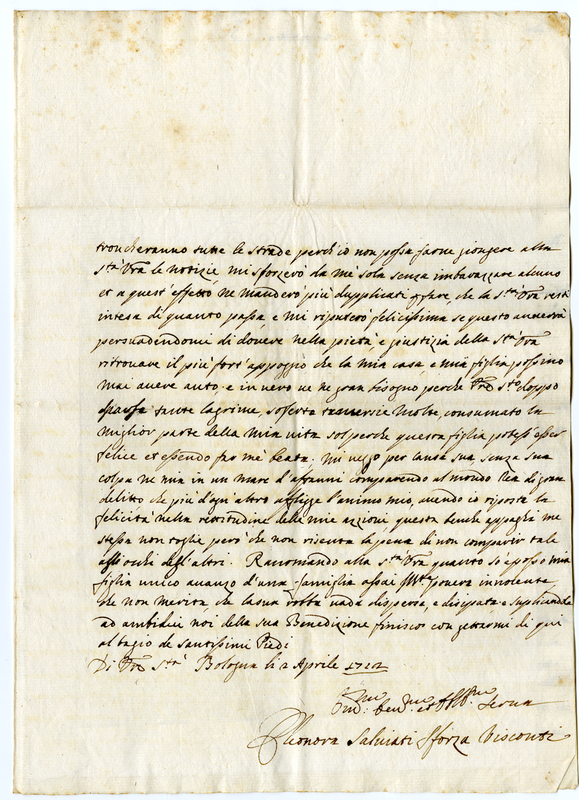 troncheranno tutte le strade perch'io non possa farne giongere alla
S.tà V.ra le notizie mi sforzerò da me sola senza imbarazzare alcuno
et a quest'effetto ne manderò più dupplicati p fare, che la S.tà V.ra resti
intesa di quanto passa e mi riputerò felicissima se questo
persuadendomi di dovere nella pietà, e giustizia della S.tà V.ra
ritrovare il più fort'appoggio che la mia casa e mia figlia possino
mai avere auto, e in vero ve ne gran bisogno perche doppo
tante lagrime, soferta molte, consumato la
miglior parte della mia vita sol perche questa figlia potess'esser
felice et essendo per me beata. Mi veggo per causa sua senza sua
colpa ne mia in un mare d'afanni comparendo al mondo Rea di gran
delitto che più d'ogn'altro afligge l'animo mio, avendo io riposta la
felicità nella rettitudine delle mie azzioni questa benche appaghi me
stessa non toglie però che non risenta la pena di non comparir tale
agli ochi degl'altri. Racomando alla S.tà V.ra quanto sò e posso mia
figlia unico avanzo d'una famiglia assai povera innocente
che non merita, che la sua vada dispersa, e disipata e suplicandola
ad ambidue noi della sua Benedizione finisco con gettarmi di qui
al bagio de santissimi Piedi
Di V.ra S.tà Bologna li 2 Aprile 1712
Serva
Eleonora Salviati Sforza Visconti